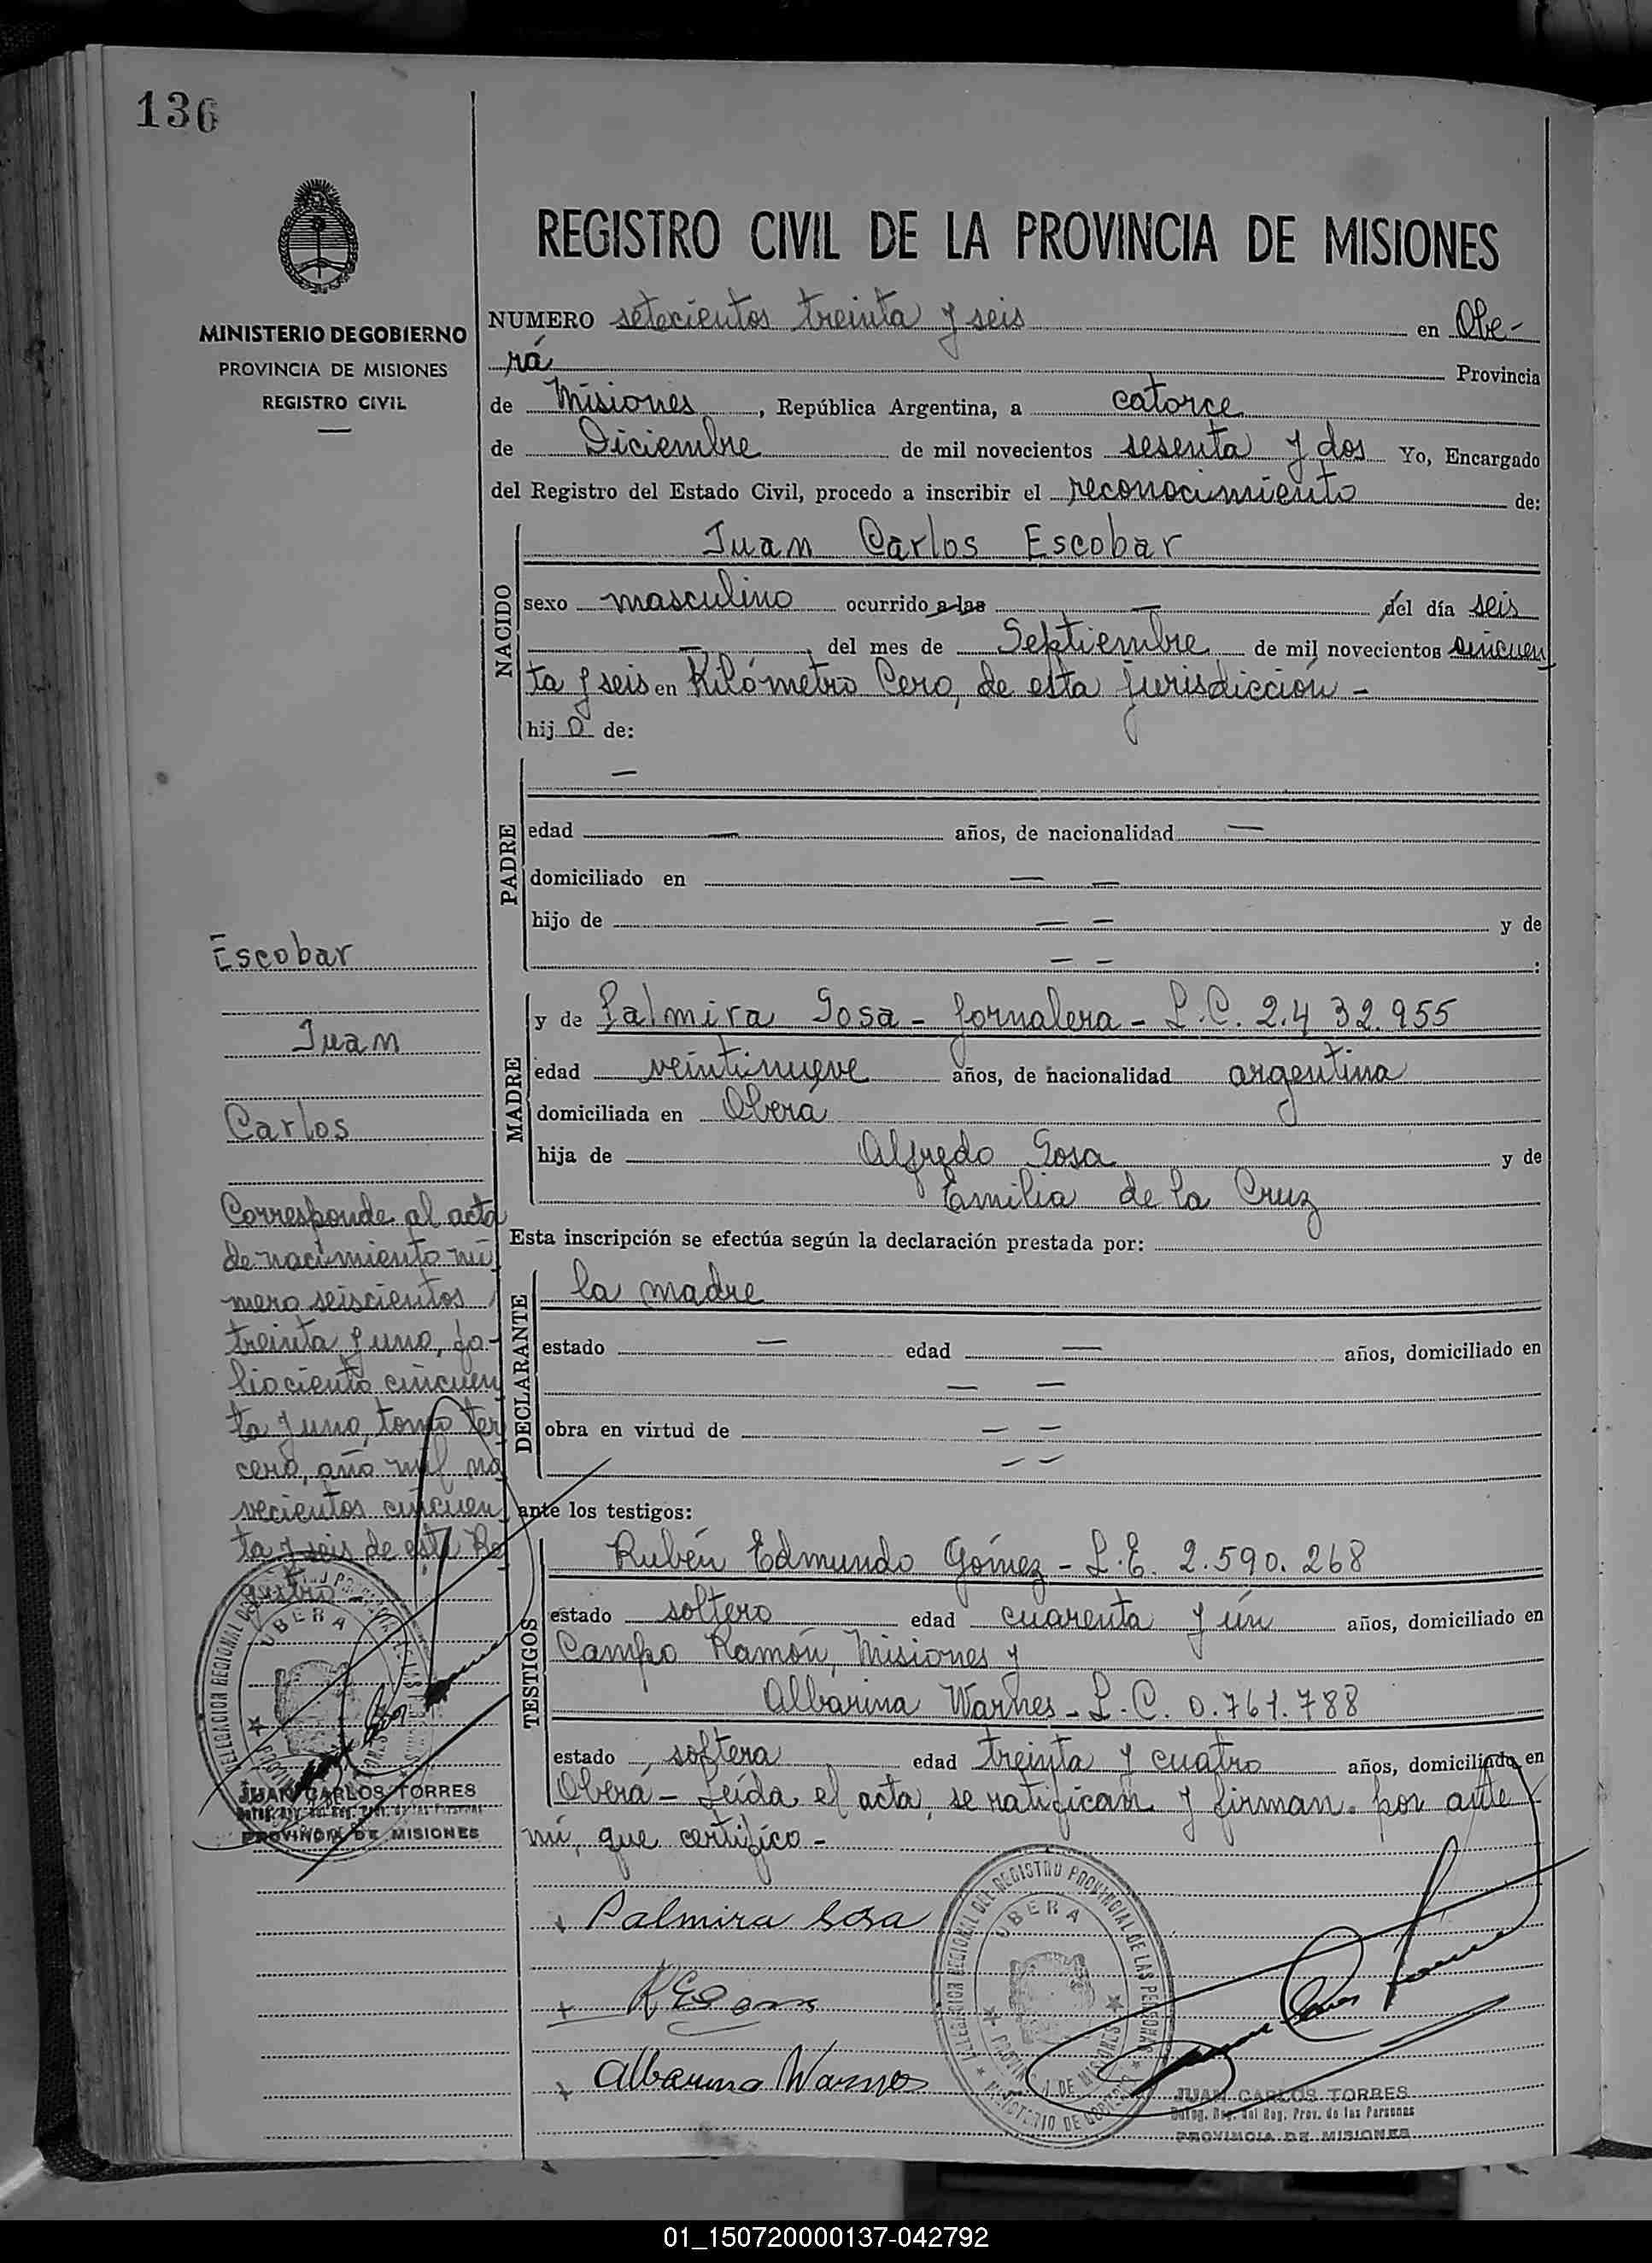 136
REGISTRO CIVIL DE LA PROVINCIA DE MISIONES
MINISTERIO DE GOBIERNO
PROVINCIA DE MISIONES
REGISTRO CIVIL
NUMERO setecientos treinta y seis en Obe-
rá Provincia
de Misiones, República Argentina, a catorce
de Diciembre de mil novecientos sesenta y dos Yo, Encargado
del Registro del Estado Civil, procedo a inscribir el reconocimiento de:
NACIDO
Juan Carlos Escobar
sexo masculino ocurrido a las — del día seis
— del mes de Septiembre de mil novecientos cincuen
ta y seis en Kilómetro Cero, de esta jurisdicción -
hijo de:
PADRE
—
edad — años, de nacionalidad —
domiciliado en — —
hijo de — — y de
— — :
MADRE
y de Palmira Sosa - Jornalera - L.C. 2.432.955
edad veintinueve años, de nacionalidad argentina
domiciliada en Oberá
hija de Alfredo Sosa y de
Emilia de la Cruz
Esta inscripción se efectúa según la declaración prestada por:
DECLARANTE
la madre
estado — edad — años, domiciliado en
— —
obra en virtud de — —
— —
ante los testigos:
TESTIGOS
Rubén Edmundo Gómez - L.E. 2.590.268
estado soltero edad cuarenta y ún años, domiciliado en
Campo Ramón, Misiones y
Albarina Warnes - L.C. 0.761.788
estado soltera edad treinta y cuatro años, domiciliado en
Oberá - Leída el acta, se ratifican y firman por ante
mí, que certifico -
Palmira Sosa
Albarina Warnes
Escobar
Juan
Carlos
Corresponde al acta
de nacimiento nú
mero seiscientos
treinta y uno, fo-
lio ciento cincuen
ta y uno, tomo ter
cero, año mil no
vecientos cincuen
ta y seis de este Re
gistro
DELEGACION REGIONAL DEL REGISTRO PROVINCIAL DE LAS PERSONAS
OBERA
PROVINCIA DE MISIONES
MINISTERIO DE GOBIERNO
JUAN CARLOS TORRES
PROVINCIA DE MISIONES
JUAN CARLOS TORRES
Deleg. Reg. del Reg. Prov. de las Personas
PROVINCIA DE MISIONES
01_150720000137-042792